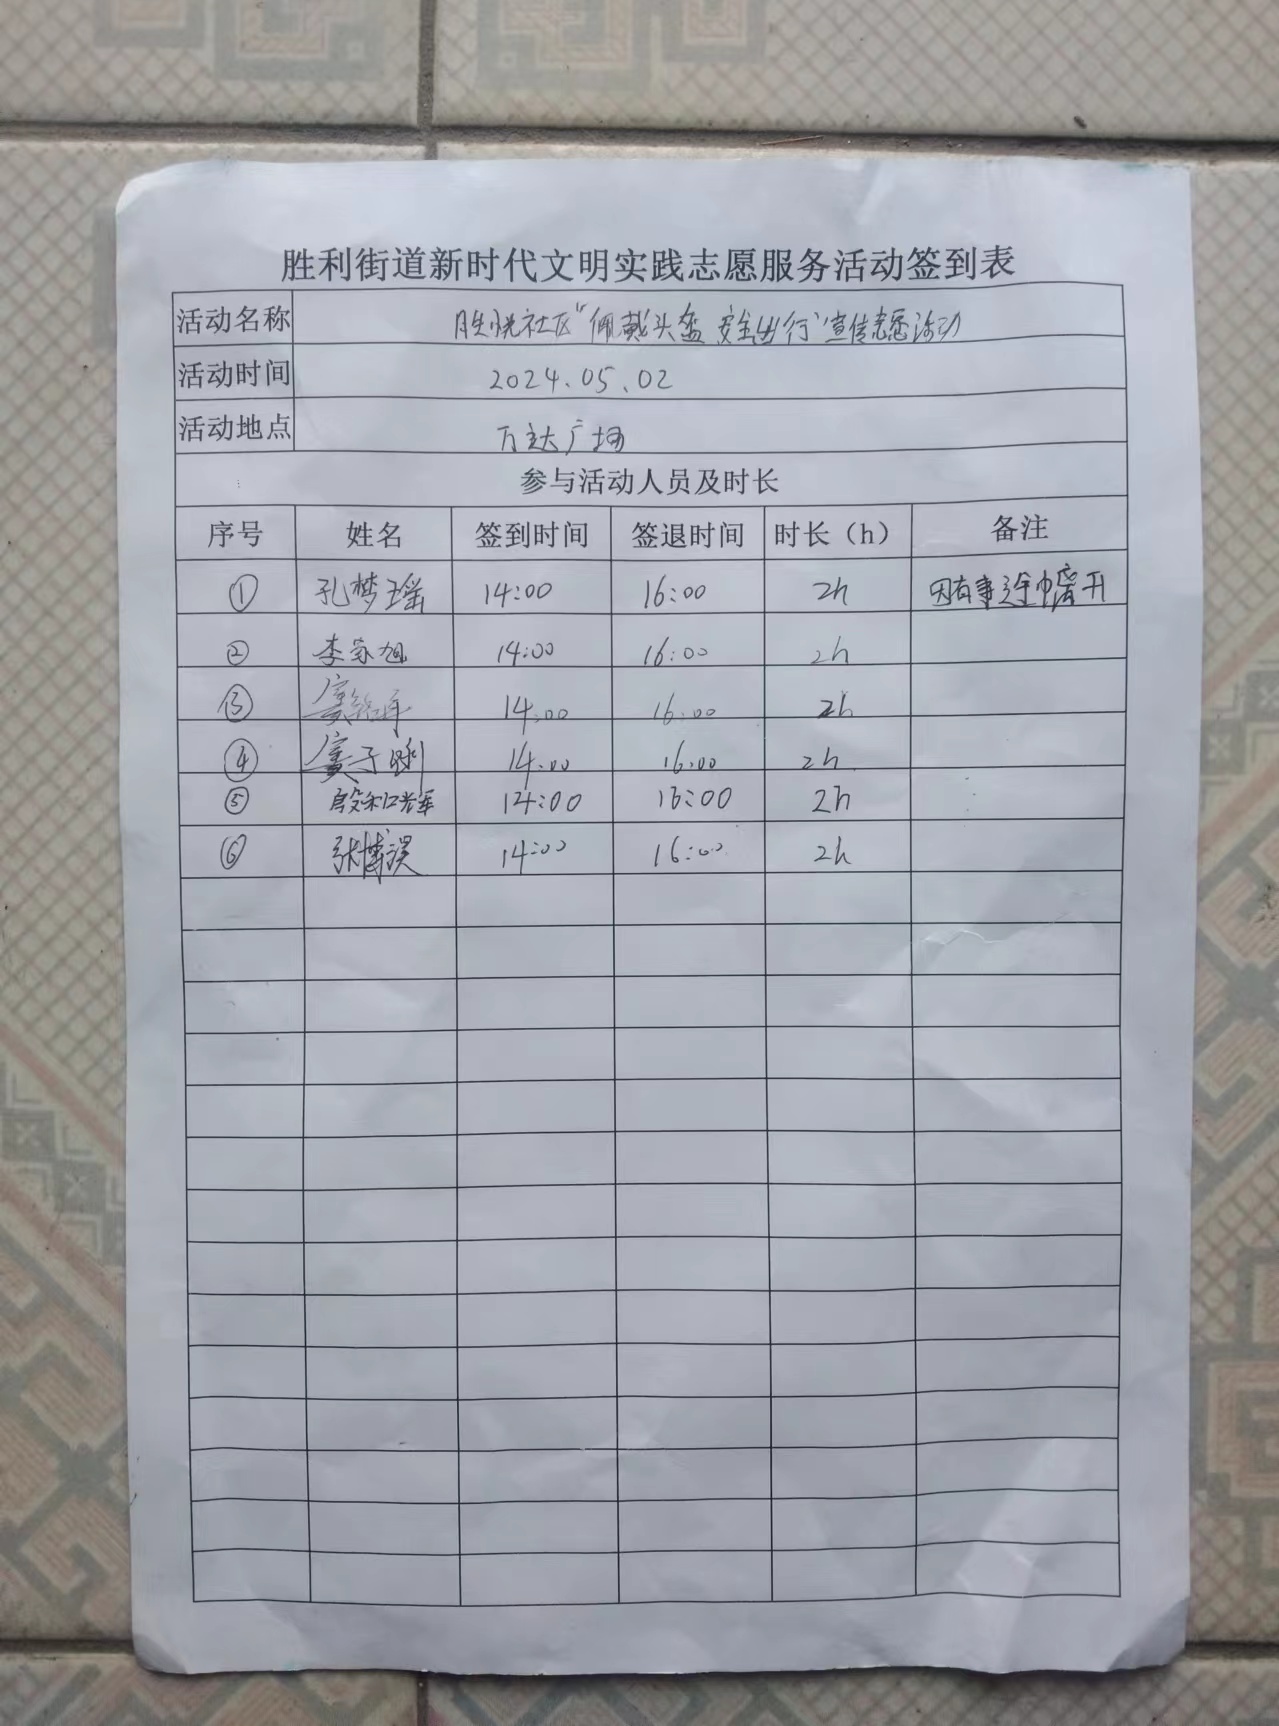 胜利街道新时代文明实践志愿服务活动签到表
活动名称 胜悦社区“佩戴头盔 安全出行”宣传志愿活动
活动时间 2024.05.02
活动地点 万达广场
参与活动人员及时长
序号 姓名 签到时间 签退时间 时长（h） 备注
① 孔梦瑶 14:00 16:00 2h 因有事途中离开
② 李家旭 14:00 16:00 2h
③ 14:00 16:00 2h
④ 14:00 16:00 2h
⑤ 14:00 16:00 2h
⑥ 张博 14:00 16:00 2h